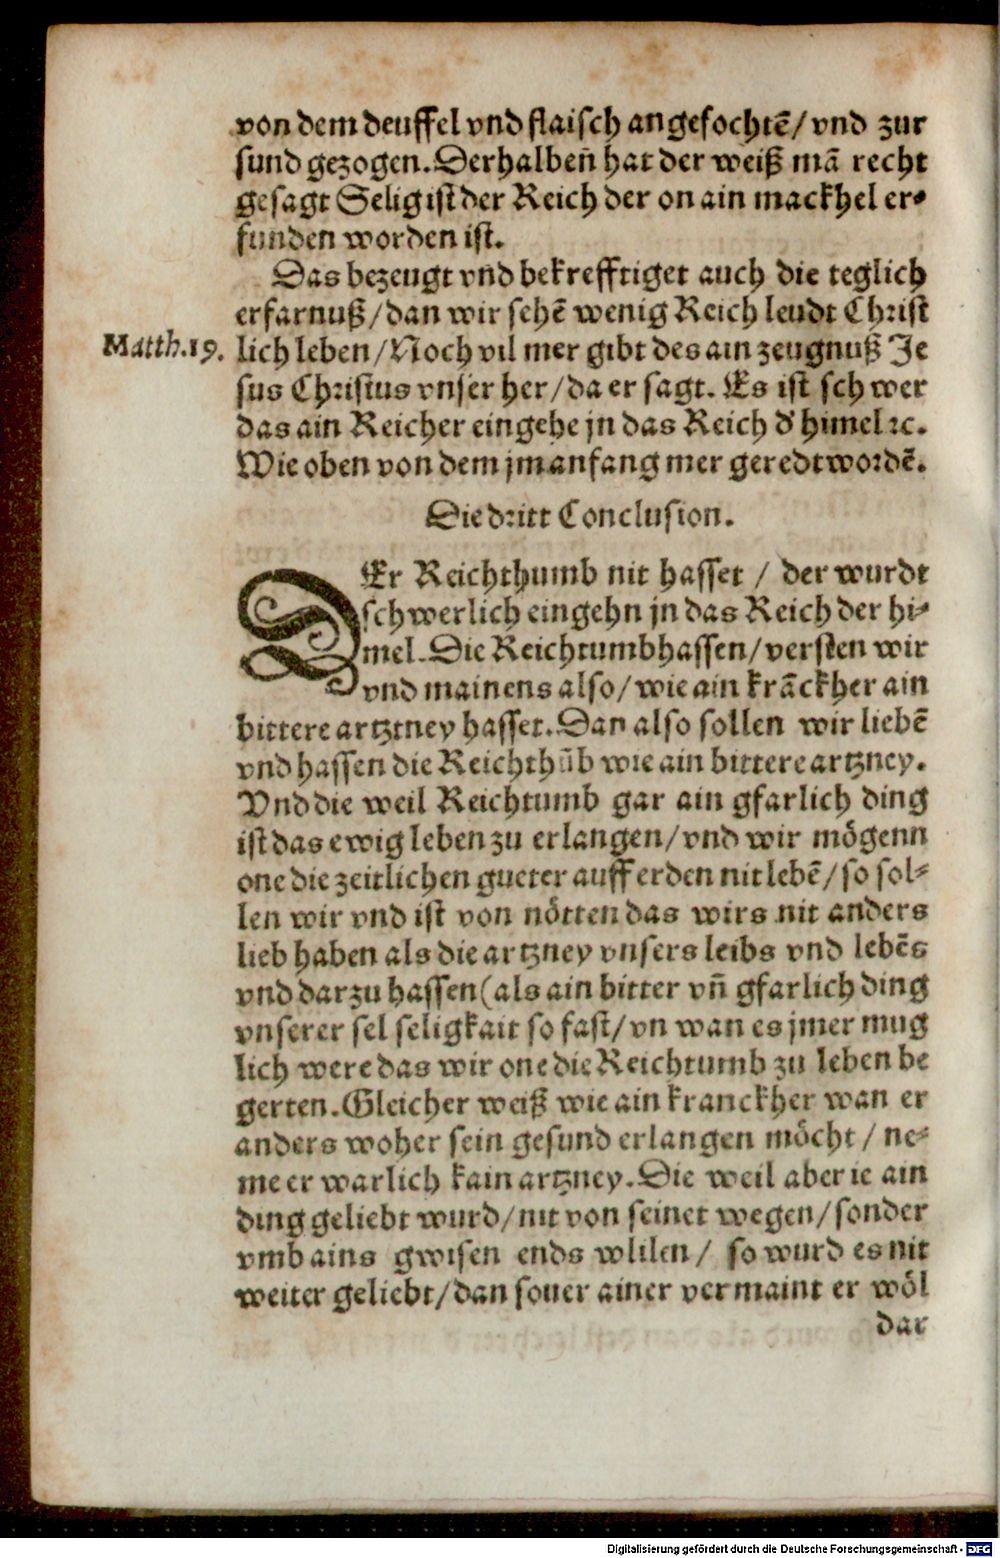 von dem deuffel vnd flaisch angefochtē/ vnd zur
sund gezogen. Derhalbeñ hat der weiß mā recht
gesagt Selig ist der Reich der on ain mackhel er-
funden worden ist.
Das bezeugt vnd bekrefftiget auch die teglich
erfarnuß/ dan wir sehē wenig Reich leudt Christ
Matth.19.
lich leben/ Noch vil mer gibt des ain zeugnuß Je
sus Christus vnser her/ da er sagt. Es ist schwer
das ain Reicher eingehe jn das Reich d' himel ꝛc.
Wie oben von dem jm anfang mer geredt wordē.
Die dritt Conclusion.
DEr Reichthumb nit hasset / der wurdt
schwerlich eingehn jn das Reich der hi-
mel. Die Reichtumb hassen/ versten wir
vnd mainens also/ wie ain krāckher ain
bittere artztney hasset. Dan also sollen wir liebē
vnd hassen die Reichthūb wie ain bittere artzney.
Vnd die weil Reichtumb gar ain gfarlich ding
ist das ewig leben zu erlangen/ vnd wir mögenn
one die zeitlichen gueter auff erden nit lebē/ so sol-
len wir vnd ist von nötten das wirs nit anders
lieb haben als die artzney vnsers leibs vnd lebēs
vnd darzu hassen (als ain bitter vñ gfarlich ding
vnserer sel seligkait so fast/ vn wan es jmer mug
lich were das wir one die Reichtumb zu leben be
gerten. Gleicher weiß wie ain kranckher wan er
anders woher sein gesund erlangen möcht / ne-
me er warlich kain artzney. Die weil aber ie ain
ding geliebt wurd/ nit von seinet wegen/ sonder
vmb ains gwisen ends wlilen/ so wurd es nit
weiter geliebt/ dan souer ainer vermaint er wöl
dar
Digitalisierung gefördert durch die Deutsche Forschungsgemeinschaft - DFG